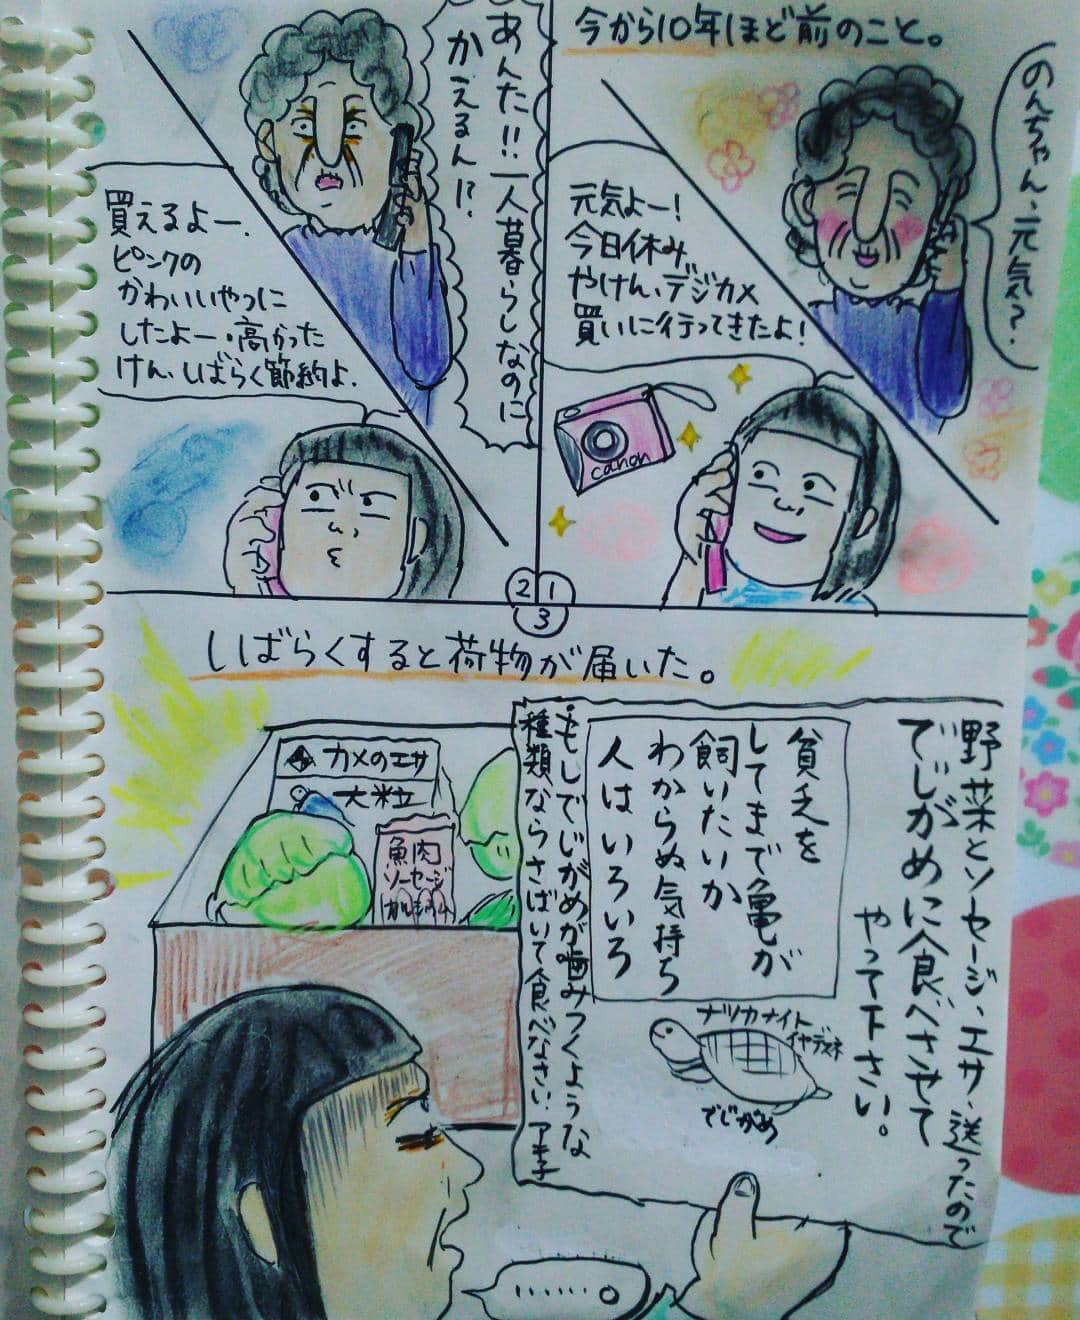 今から10年ほど前のこと。
のんちゃん、元気？
元気よー！
今日休み
やけん、デジカメ
買いに行ってきたよ！
canon
1
あんた!!一人暮らしなのに
かえるん!?
買えるよー、
ピンクの
かわいいやつに
したよー・高かった
けん、しばらく節約よ.
2
3
しばらくすると荷物が届いた。
カメのエサ
大粒
魚肉
ソーセージ
野菜とソセージ、エサ、送ったので
でじがめに食べさせて
やって下さい。
貧乏を
してまで亀が
飼いたいか
わからぬ気持ち
人はいろいろ
ナツカナイト
イヤデスネ
でじがめ
もしでじがめが噛みつくような
種類ならさばいて食べなさい.アキ子
……。